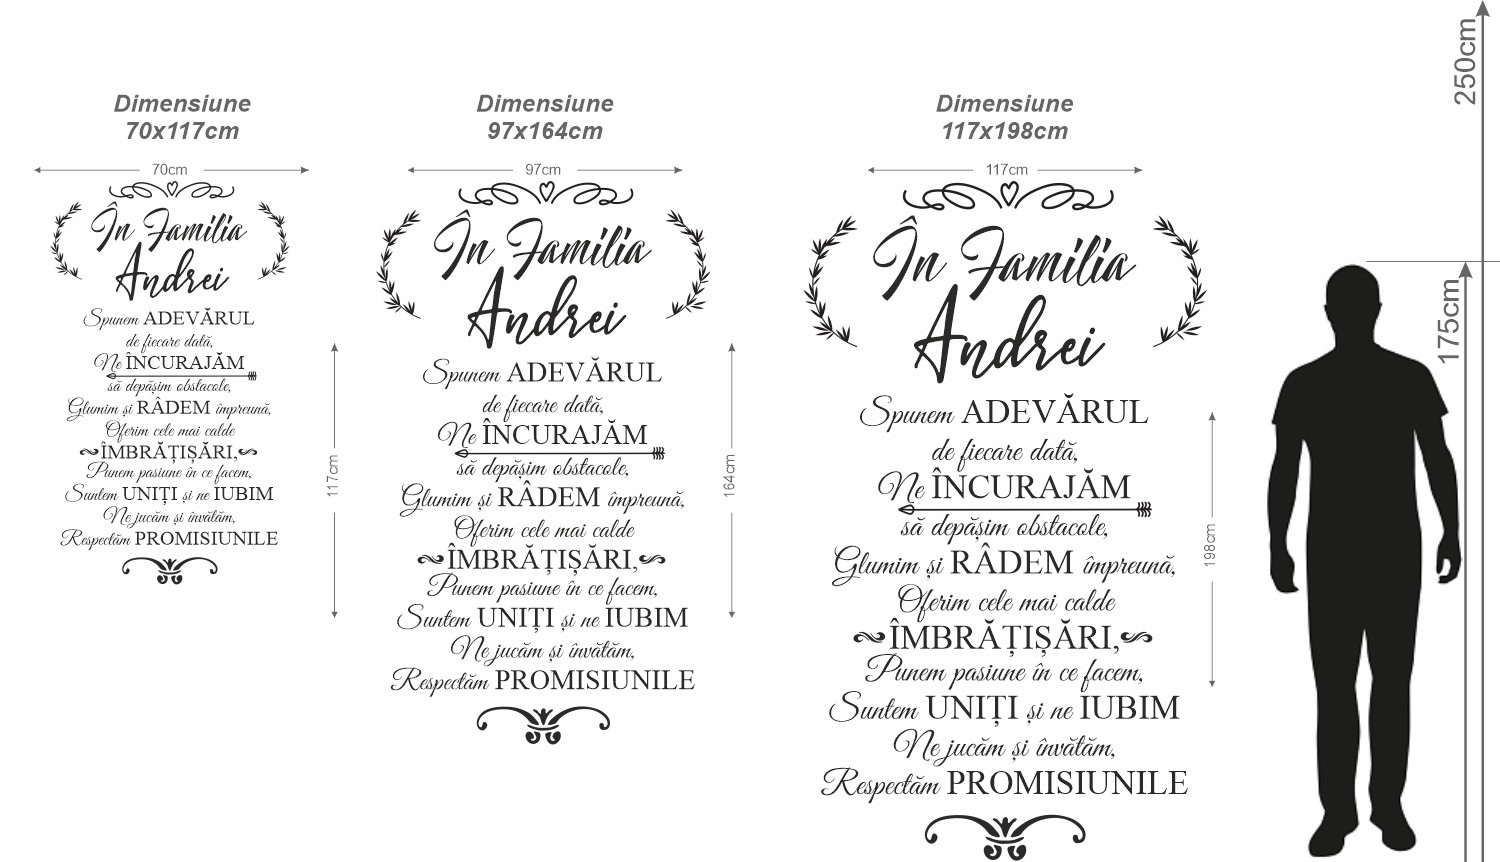 Dimensiune
70x117cm
70cm
În Familia
Andrei
Spunem ADEVĂRUL
de fiecare dată,
Ne ÎNCURAJĂM
să depășim obstacole,
Glumim și RÂDEM împreună,
Oferim cele mai calde
ÎMBRĂȚIȘĂRI,
Punem pasiune în ce facem,
Suntem UNIȚI și ne IUBIM
Ne jucăm și învătăm,
Respectăm PROMISIUNILE
117cm
Dimensiune
97x164cm
97cm
În Familia
Andrei
Spunem ADEVĂRUL
de fiecare dată,
Ne ÎNCURAJĂM
să depășim obstacole,
Glumim și RÂDEM împreună,
Oferim cele mai calde
ÎMBRĂȚIȘĂRI,
Punem pasiune în ce facem,
Suntem UNIȚI și ne IUBIM
Ne jucăm și învătăm,
Respectăm PROMISIUNILE
164cm
Dimensiune
117x198cm
117cm
În Familia
Andrei
Spunem ADEVĂRUL
de fiecare dată,
Ne ÎNCURAJĂM
să depășim obstacole,
Glumim și RÂDEM împreună,
Oferim cele mai calde
ÎMBRĂȚIȘĂRI,
Punem pasiune în ce facem,
Suntem UNIȚI și ne IUBIM
Ne jucăm și învătăm,
Respectăm PROMISIUNILE
198cm
175cm
250cm